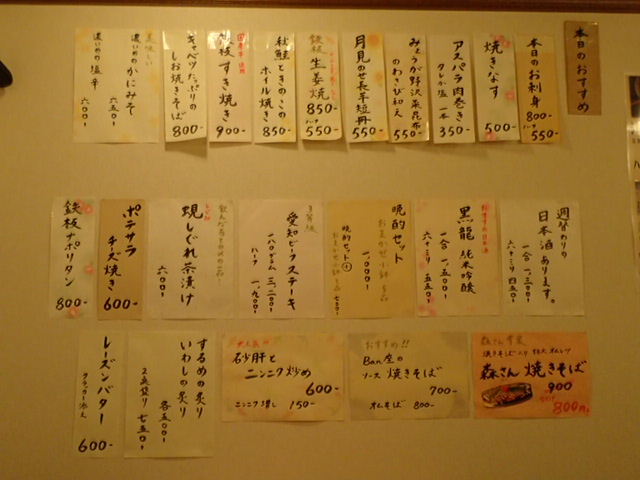 本日のおすすめ
本日のお刺身
800-
ハーフ 550-
焼きなす
500-
アスパラ肉巻き
タレか塩 一本
350-
みょうが野沢菜昆布
のわさび和え
550-
月見のせ長芋短冊
550-
鉄板生姜焼
850-
ハーフ 550-
秋鮭ときのこの
ホイル焼き
850-
国産牛使用
鉄板すき焼き
900-
キャベツたっぷりの
しお焼きそば
800-
美味しい
濃いめのかにみそ
六五〇-
濃いめの塩辛
六〇〇-
週替わりの
日本酒あります。
一合 一、三〇〇-
六十ミリ 四五〇-
黒龍 純米吟醸
一合 一、五〇〇-
六十ミリ 五五〇-
晩酌セット
おまかせ小鉢5品
一,〇〇〇-
愛知ビーフステーキ
一八〇グラム 三、二〇〇-
ハーフ 一、九〇〇-
蜆しぐれ茶漬け
六〇〇-
ポテサラ
チーズ焼き
600-
鉄板ナポリタン
800-
森さん考案
森さん焼きそば
900
800円
おすすめ!!
Ban座の
ソース 焼きそば
700-
オムそば 800-
砂肝と
ニンニク炒め
600-
ニンニク増し 150-
するめの炙り
いわしの炙り
各五五〇-
2点盛り 七五〇-
レーズンバター
クラッカー添え
600-